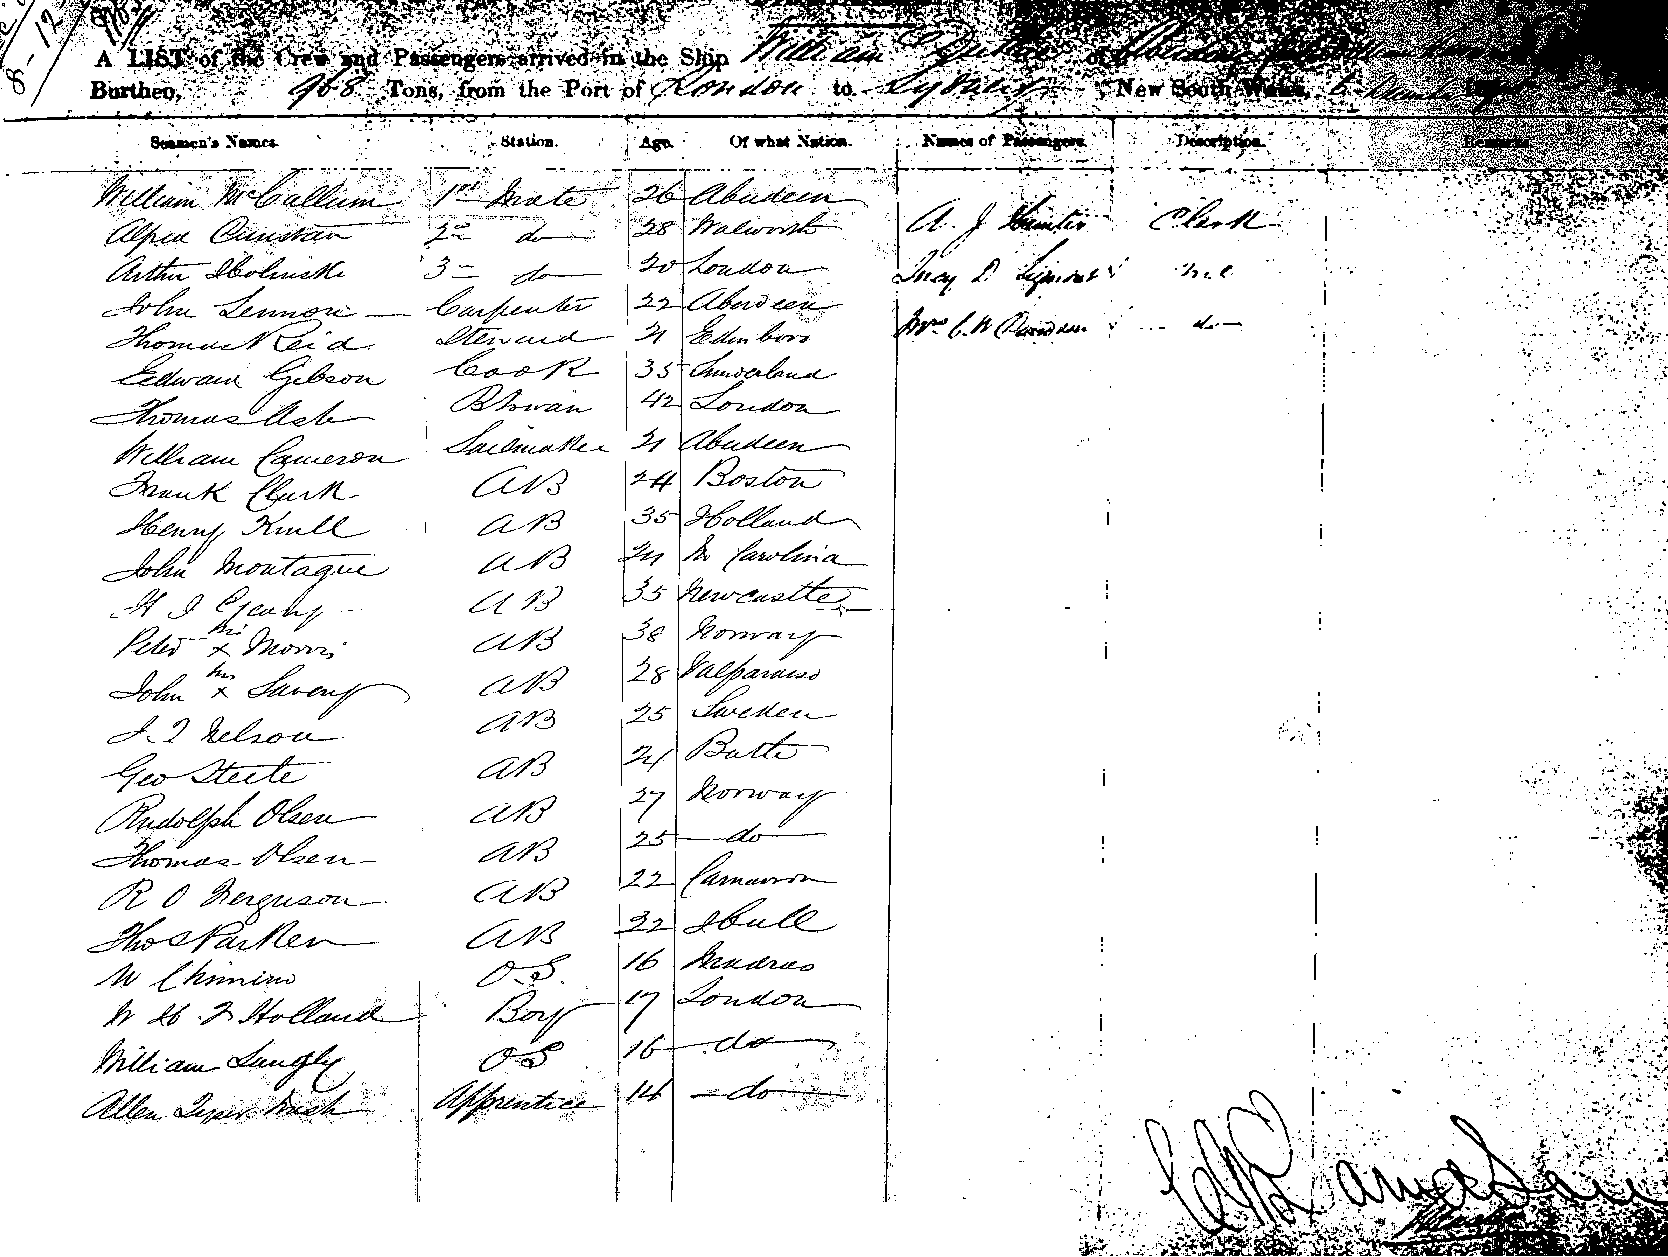 8-12
A LIST of the Crew and Passengers arrived in the Ship William of Aberdeen
Burthen, 968 Tons, from the Port of London to Sydney, New South Wales, 6
Seamen's Names. Station. Age. Of what Nation. Names of Passengers. Description. Remarks.
William McCallum 1st Mate 26 Aberdeen
Alfred 2nd do 28 Walworth A. J Hunter Clerk
Arthur 3 do 20 London
John Lennon Carpenter 22 Aberdeen
Thomas Reid Steward 21 Edinboro Mrs C. W do
Edward Gibson Cook 35 Sunderland
Thomas Ash Bswan 42 London
William Cameron Sailmaker 21 Aberdeen
Frank Clark AB 24 Boston
Henry Krull AB 35 Holland
John Montague AB 24 N Carolina
H J AB 35 Newcastle
Peter his x Morris AB 38 Norway
John his x AB 28 Valparaiso
J. F Nelson AB 25 Sweden
Geo Steele AB 21
Rudolph Olsen AB 27 Norway
Thomas Olsen AB 25 do
R O Ferguson AB 22 Carnarvon
Thos Parken AB 22 Hull
W O.S. 16 Madras
W H. F Holland Boy 17 London
William Langly OS 16 do
Allen Nash Apprentice 14 do